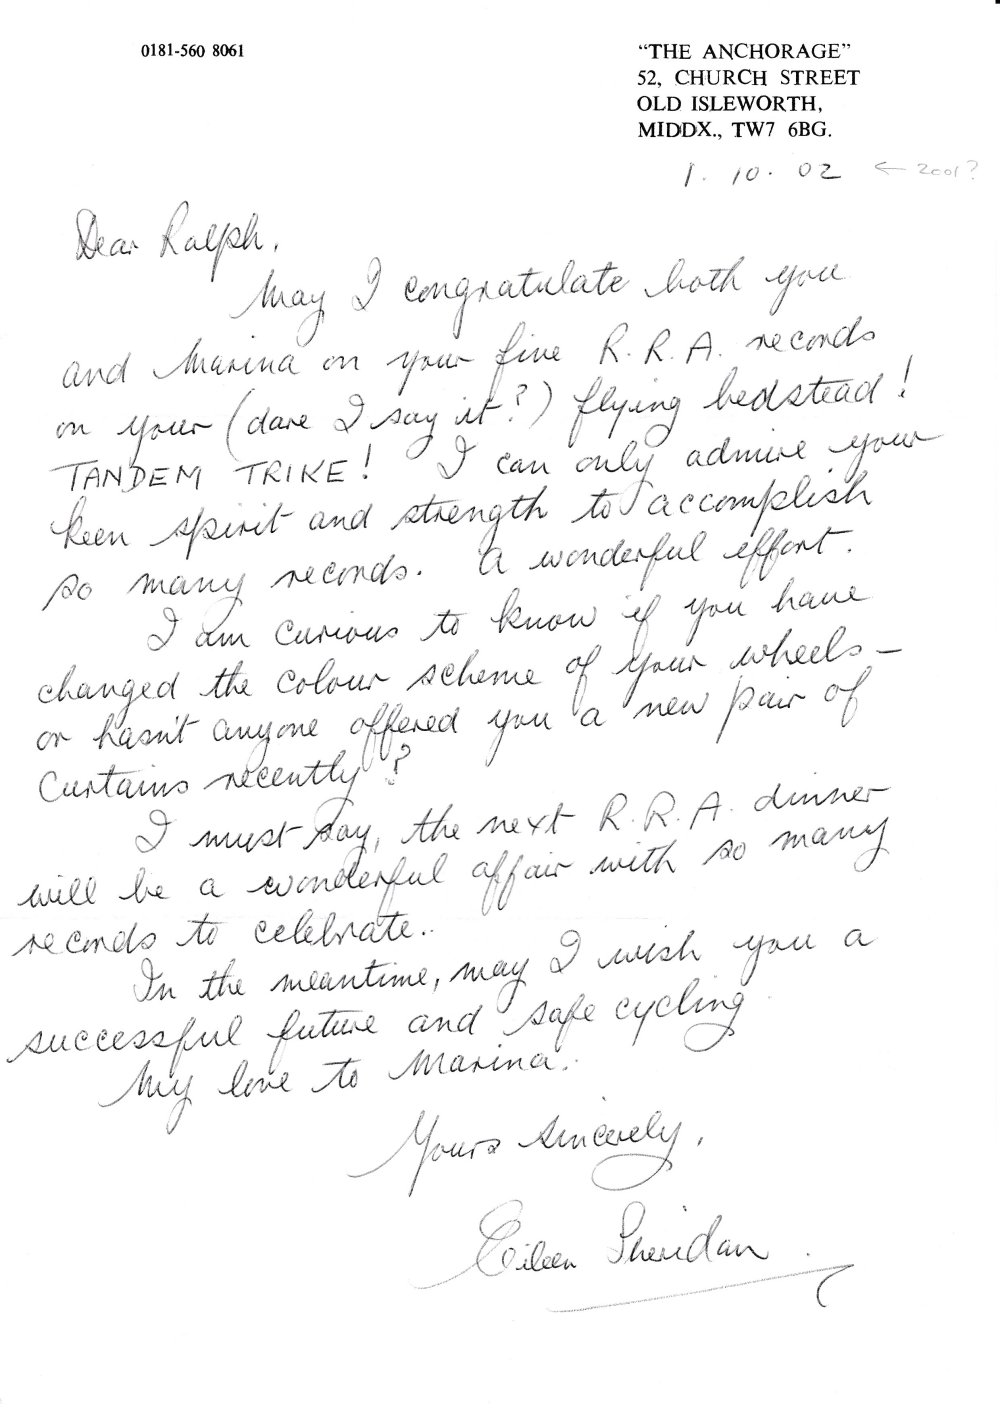 0181-560 8061
"THE ANCHORAGE"
52, CHURCH STREET
OLD ISLEWORTH,
MIDDX., TW7 6BG.
1. 10. 02 ← 2001?
Dear Ralph,
May I congratulate both you
and Marina on your five R. R. A. records
on your (dare I say it?) flying bedstead!
TANDEM TRIKE! I can only admire your
keen spirit and strength to accomplish
so many records. A wonderful effort.
I am curious to know if you have
changed the colour scheme of your wheels –
or hasn't anyone offered you a new pair of
curtains recently?
I must say, the next R. R. A. dinner
will be a wonderful affair with so many
records to celebrate..
In the meantime, may I wish you a
successful future and safe cycling
My love to Marina.
Yours sincerely,
Eileen Sheridan.